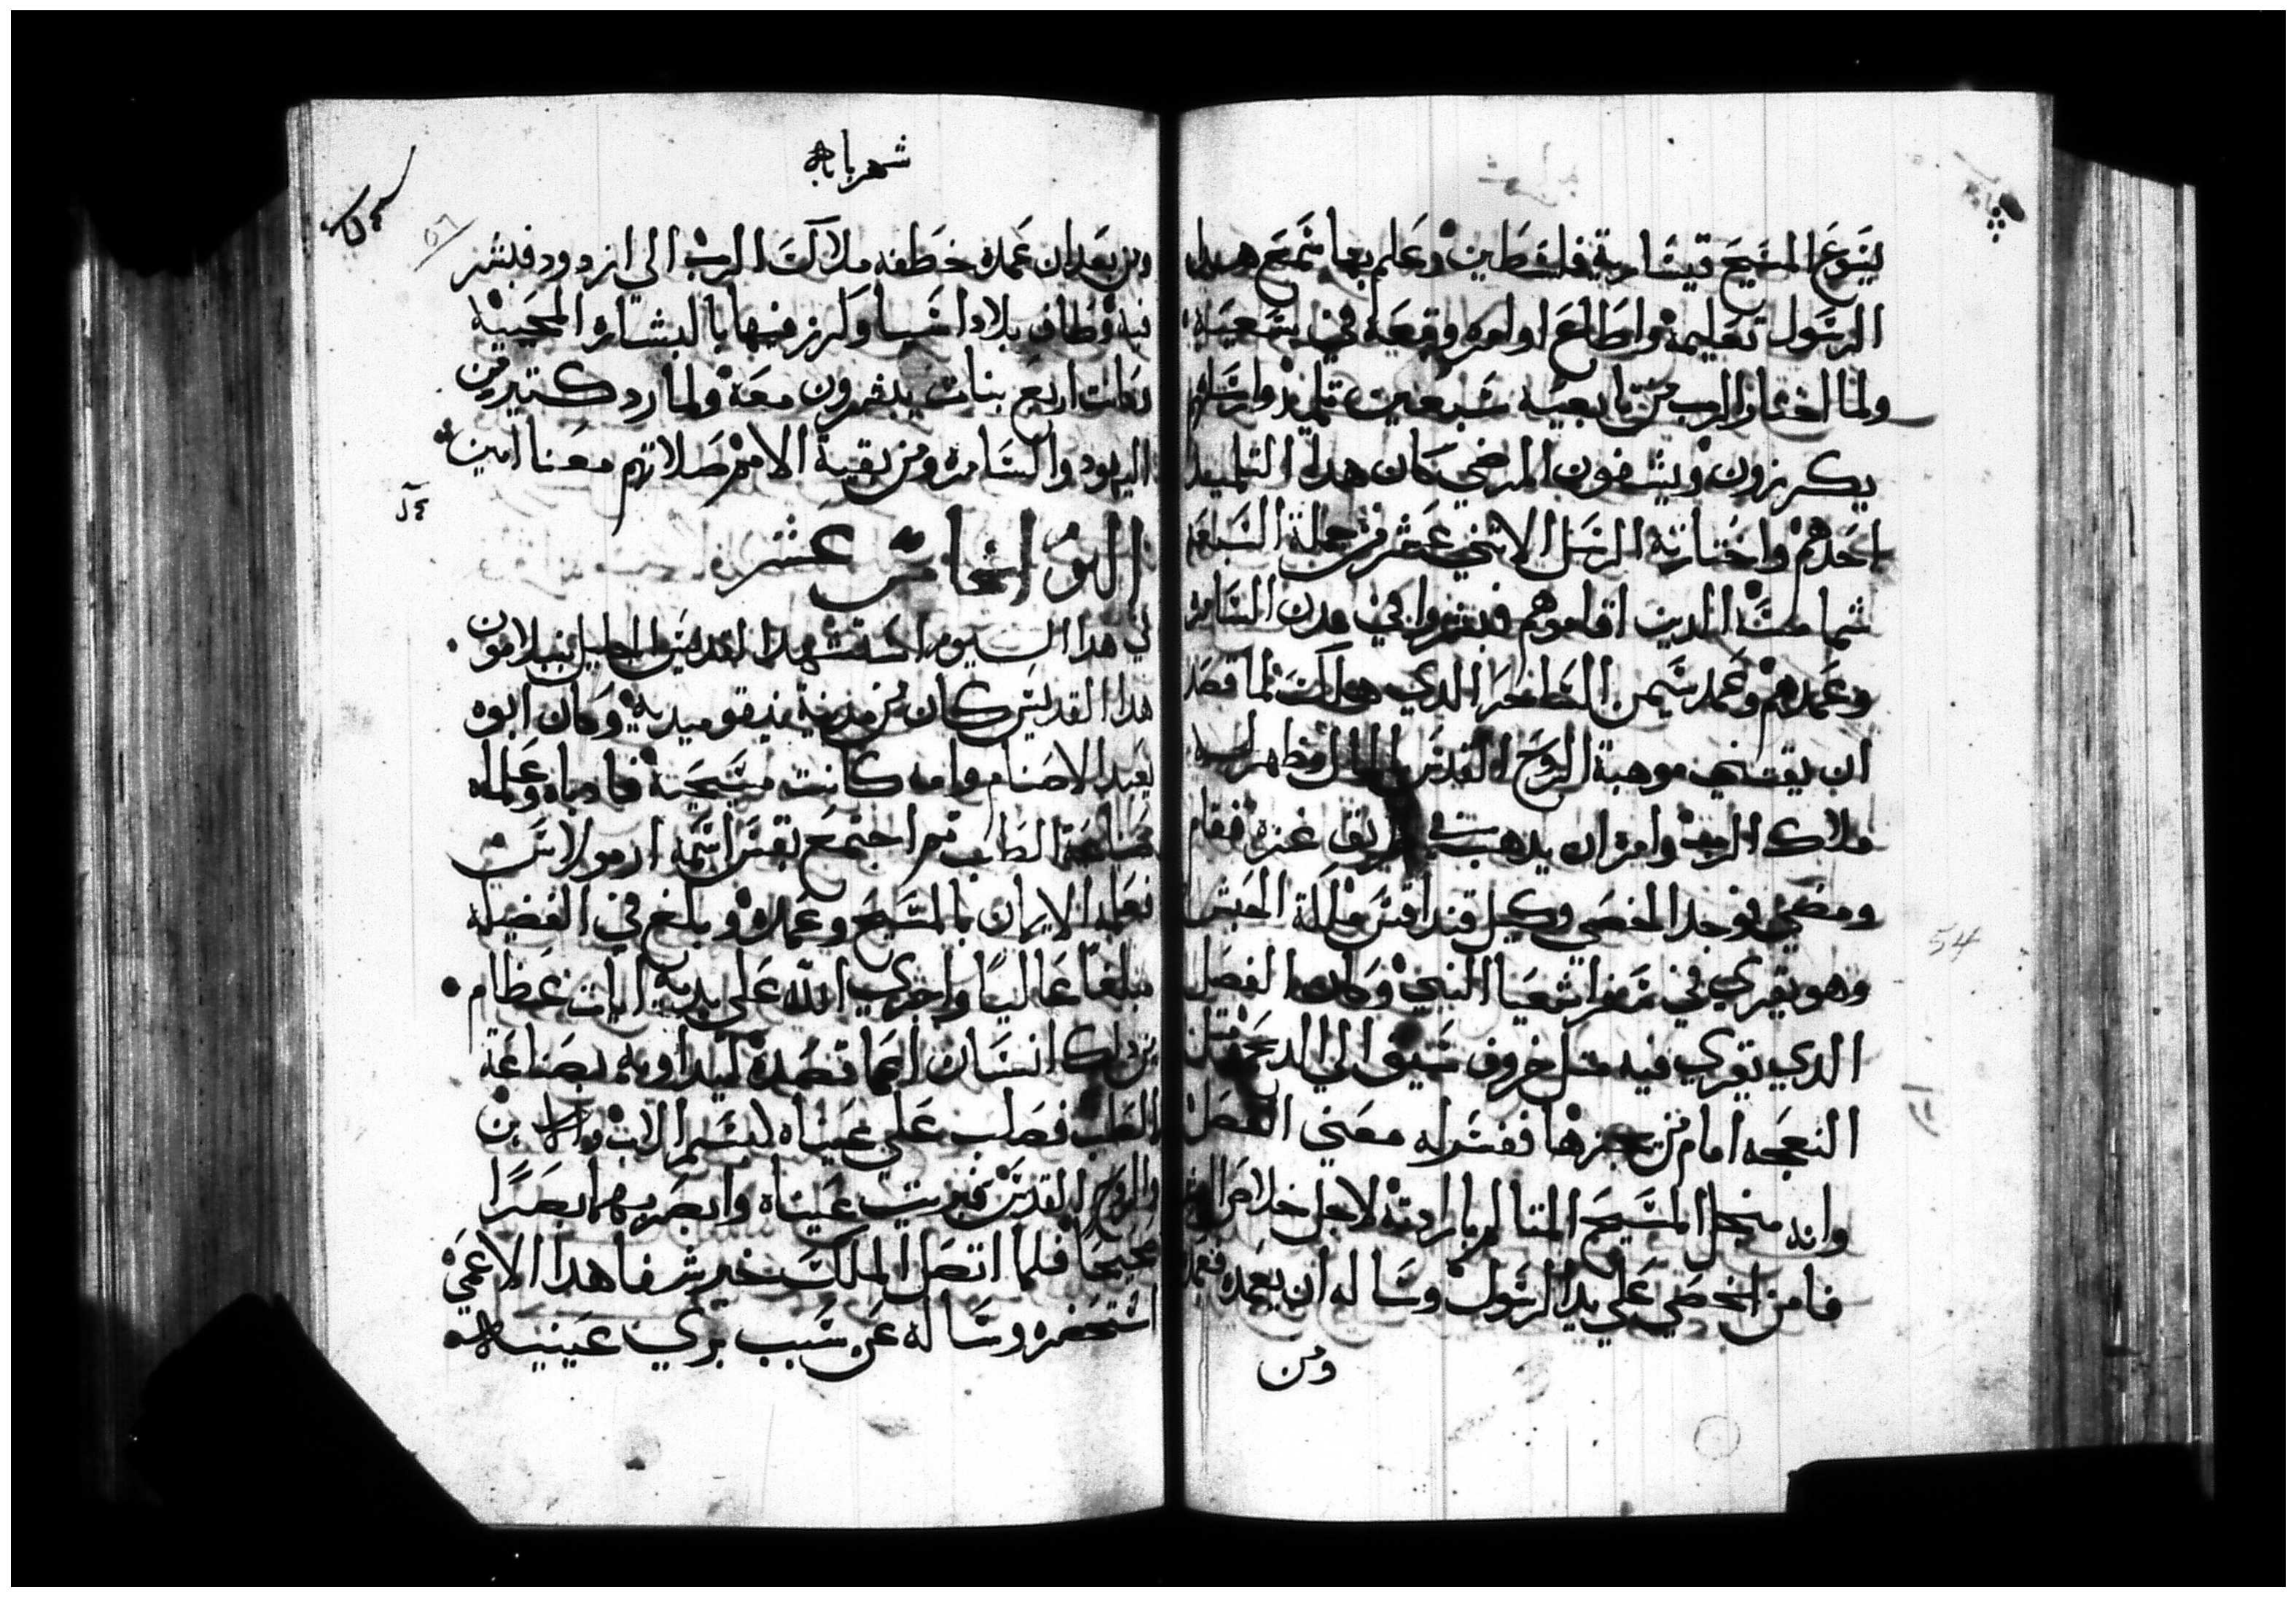 يسوع المسيح قيسارية فلسطين وعلم بها سمع هدا
الرسول تعليمه واطاع اوامره وقيعه في
ولما اختار الرب من تابعيه سبعين تلميد وارسلهم
يكرزون ويشفون المرضي كان هدا التلميد
احدهم واختارته الرسل الاتني عشر من جملة السبعه
شمامسه الدين اقاموهم فبشر في مدن السامره
وعمدهم وعمد سيمن الساحر الدي هلك لما قصد
ان يقتني موهبة الروح القدس بالمال وظهر له
ملاك الرب وامره ان يدهب في طريق غزه فقام
ومضي فوجد الخصي وكيل قنداقس ملكة الحبش
وهو يقري في سفر اشعيا النبي وكان الفصل
الدي يقري فيه متل خروف سيق الي الدبح ومتل
النعجه امام من يجزها ففسر له معني الفصل
وانه من اجل المسيح المتالم بارادته لاجل خلاص
فامن الخصي علي يد الرسول وساله ان يعمده فعمده
ومن
شهر بابه
٥٦
ومن بعد ان عمده خطفه ملاك الرب الي ازدود فبشر
فيه وطاف بلاد اسيا وكرز فيها بالبشاره المحييه
وكانت اربع بنات يبشرون معه ولما رد كتير من
اليهود والسامره ومن بقية الامم صلاتهم معنا امين
اليوم الخامس عشر
في هدا اليوم استشهد القديس الجليل بنبلامون
هدا القديس كان من مدينة نيقوميديه وكان ابوه
يعبد الاصنام وامه كانت مسيحيه فادباه وعلماه
صناعة الطب تم اجتمع بقس اسمه ارمولاس
فعلمه الايمان بالمسيح وعمده وبلغ في الفضيله
مبلغا عاليا واجري الله علي يديه ايات عظام
من دلك انسان اعما قصده ليداويه بصناعة
الطب فصلب علي عيناه بسم الاب والابن
والروح القدس فبريت عيناه وابصر بهما بصرا
صحيحا فلما اتصل الملك خبر شفا هدا الاعمي
استحضره وساله عن سبب بري عينيه
54